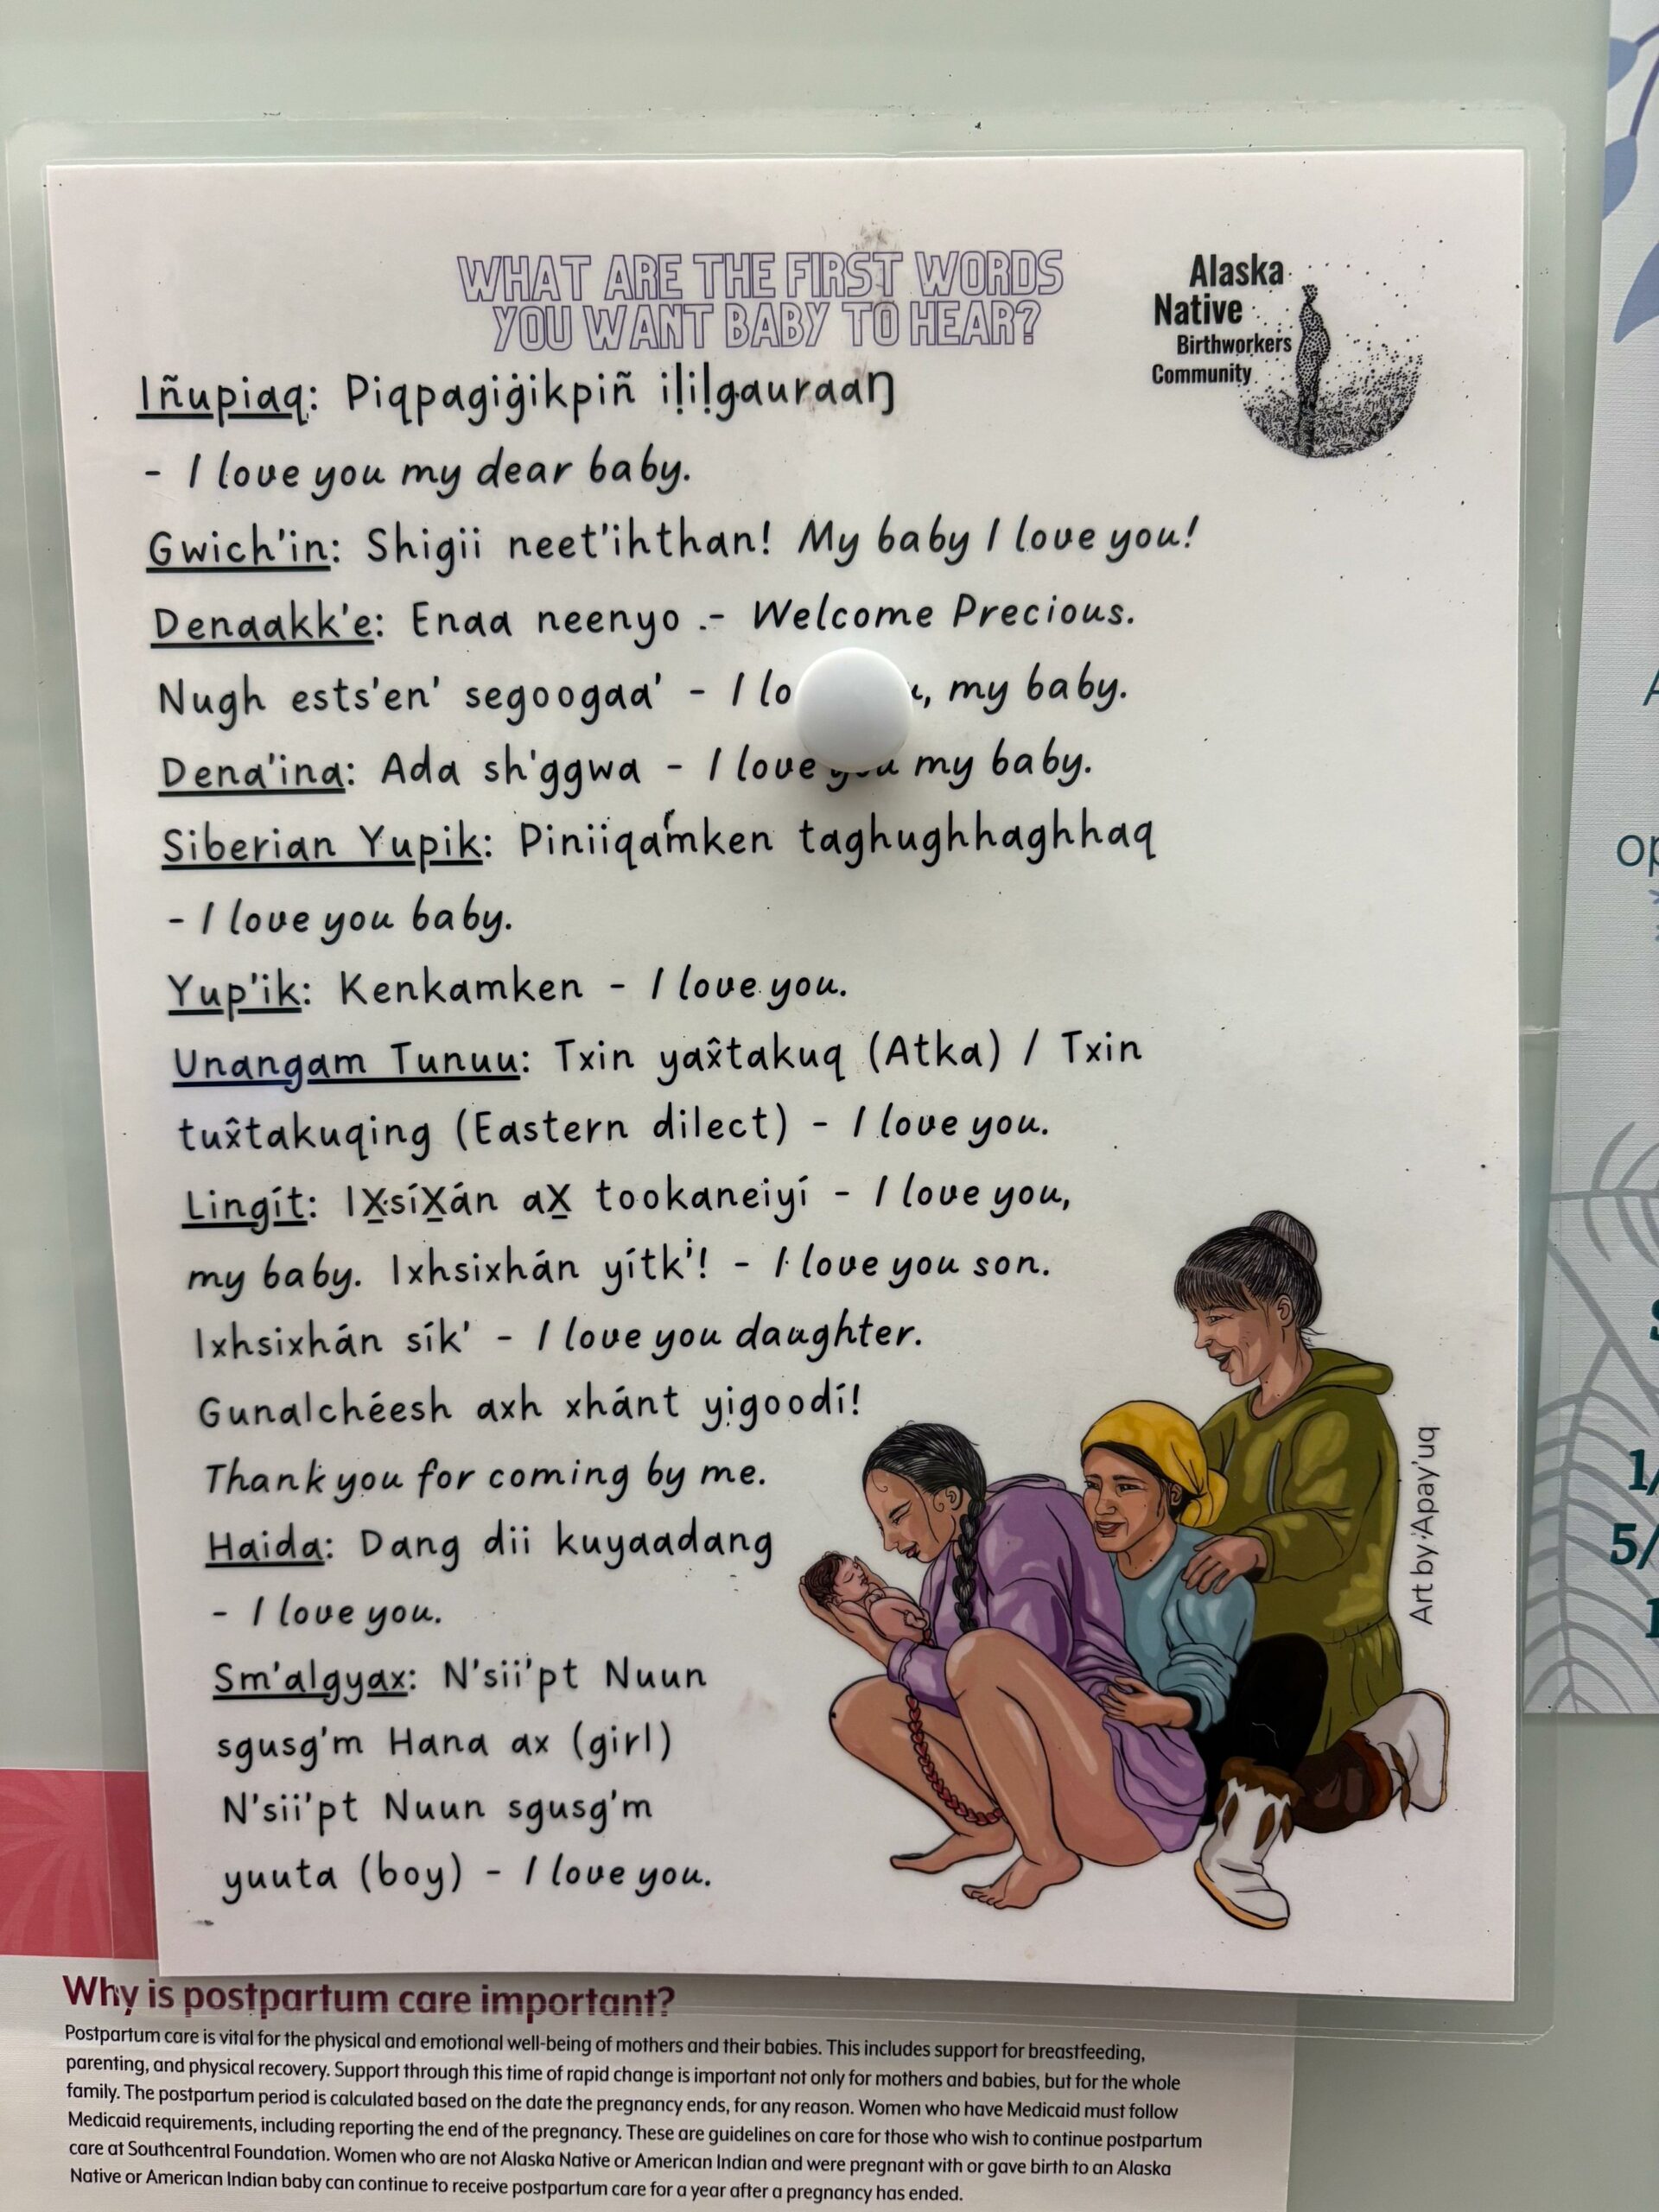 WHAT ARE THE FIRST WORDS
YOU WANT BABY TO HEAR?
Alaska
Native
Birthworkers
Community
Iñupiaq: Piqpagigikpiñ iḷiḷgauraaŋ
- I love you my dear baby.
Gwich'in: Shigii neet'ihthan! My baby I love you!
Denaakk'e: Enaa neenyo .- Welcome Precious.
Nugh ests'en' segoogaa' - I my baby.
Dena'ina: Ada sh'ggwa - I love you my baby.
Siberian Yupik: Piniiqaḿken taghughhaghhaq
- I love you baby.
Yup'ik: Kenkamken - I love you.
Unangam Tunuu: Txin yax̂takuq (Atka) / Txin
tux̂takuqing (Eastern dilect) - I love you.
Lingít: IX̱síX̱án aX̱ tookaneiyí - I love you,
my baby. Ixhsixhán yítk'! - I love you son.
Ixhsixhán sík' - I love you daughter.
Gunalchéesh axh xhánt yigoodí!
Thank you for coming by me.
Haida: Dang dii kuyaadang
- I love you.
Sm'algyax: N'sii'pt Nuun
sgusg'm Hana ax (girl)
N'sii'pt Nuun sgusg'm
yuuta (boy) - I love you.
Art by: Apay'uq
Why is postpartum care important?
Postpartum care is vital for the physical and emotional well-being of mothers and their babies. This includes support for breastfeeding,
parenting, and physical recovery. Support through this time of rapid change is important not only for mothers and babies, but for the whole
family. The postpartum period is calculated based on the date the pregnancy ends, for any reason. Women who have Medicaid must follow
Medicaid requirements, including reporting the end of the pregnancy. These are guidelines on care for those who wish to continue postpartum
care at Southcentral Foundation. Women who are not Alaska Native or American Indian and were pregnant with or gave birth to an Alaska
Native or American Indian baby can continue to receive postpartum care for a year after a pregnancy has ended.